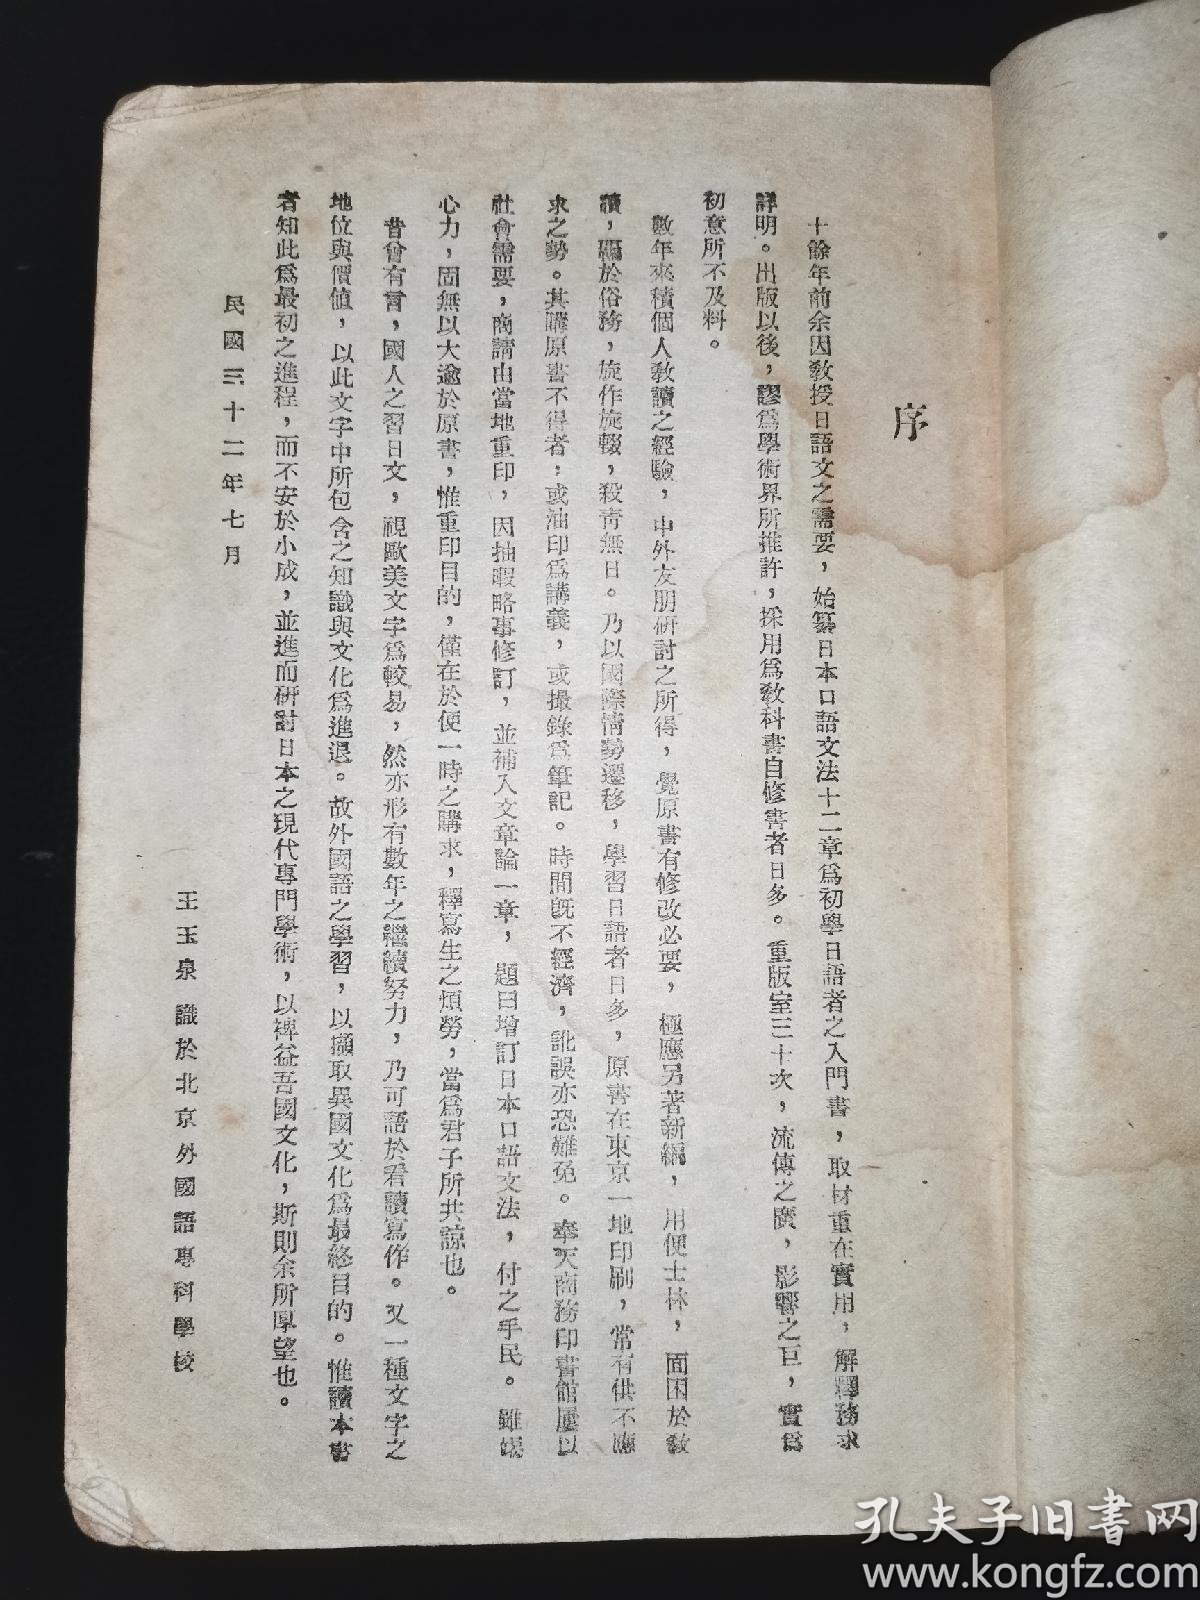 序
十餘年前余因教授日語文之需要，始纂日本口語文法十二章爲初學日語者之入門書，取材重在實用，解釋務求
詳明。出版以後，謬爲學術界所推許，採用爲教科書自修書者日多。重版至三十次，流傳之廣，影響之巨，實爲
初意所不及料。
數年來積個人教讀之經驗，中外友朋研討之所得，覺原書有修改必要，極應另著新編，用便士林，面困於教
讀，羈於俗務，旋作旋輟，殺青無日。乃以國際情勢遷移，學習日語者日多，原書在東京一地印刷，常有供不應
求之勢。其購原書不得者，或油印爲講義，或撮錄爲筆記。時間既不經濟，訛誤亦恐難免。奉天商務印書館屢以
社會需要，商請由當地重印，因抽暇略事修訂，並補入文章論一章，題曰增訂日本口語文法，付之手民。雖竭
心力，固無以大逾於原書，惟重印目的，僅在於便一時之購求，釋寫生之煩勞，當爲君子所共諒也。
昔曾有言，國人之習日文，視歐美文字爲較易，然亦形有數年之繼續努力，乃可語於看讀寫作。又一種文字之
地位與價值，以此文字中所包含之知識與文化爲進退。故外國語之學習，以擷取異國文化爲最終目的。惟讀本書
者知此爲最初之進程，而不安於小成，並進而研討日本之現代專門學術，以裨益吾國文化，斯則余所厚望也。
民國三十二年七月
王玉泉識於北京外國語專科學校
孔夫子旧书网
www.kongfz.com